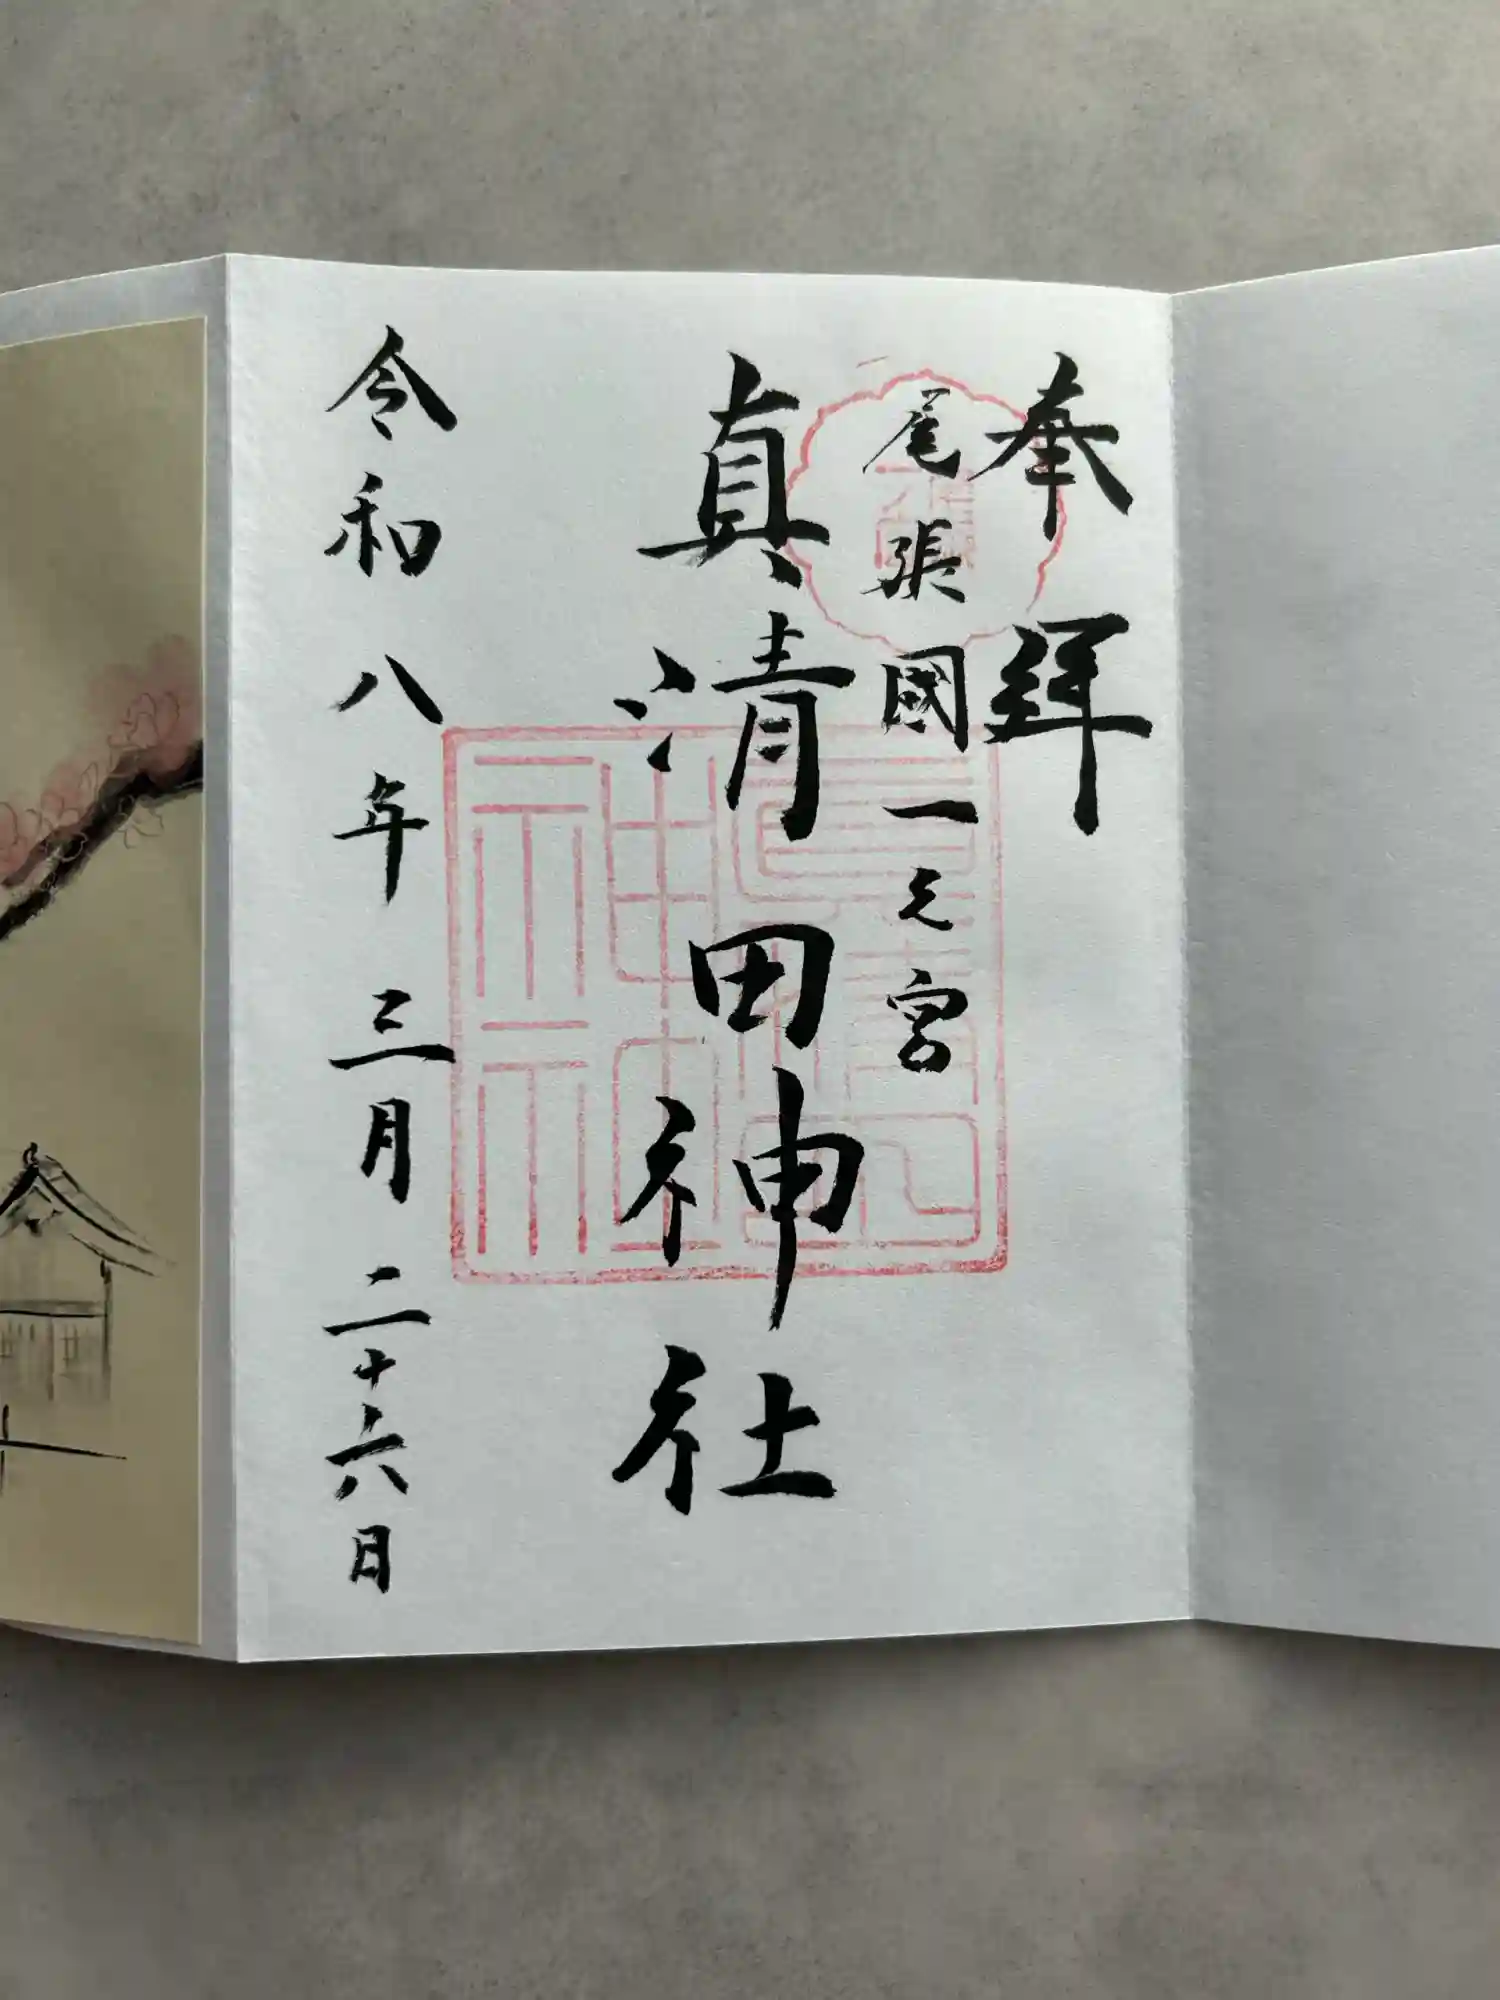 奉拝
尾張國一之宮
真清田神社
令和八年三月二十六日